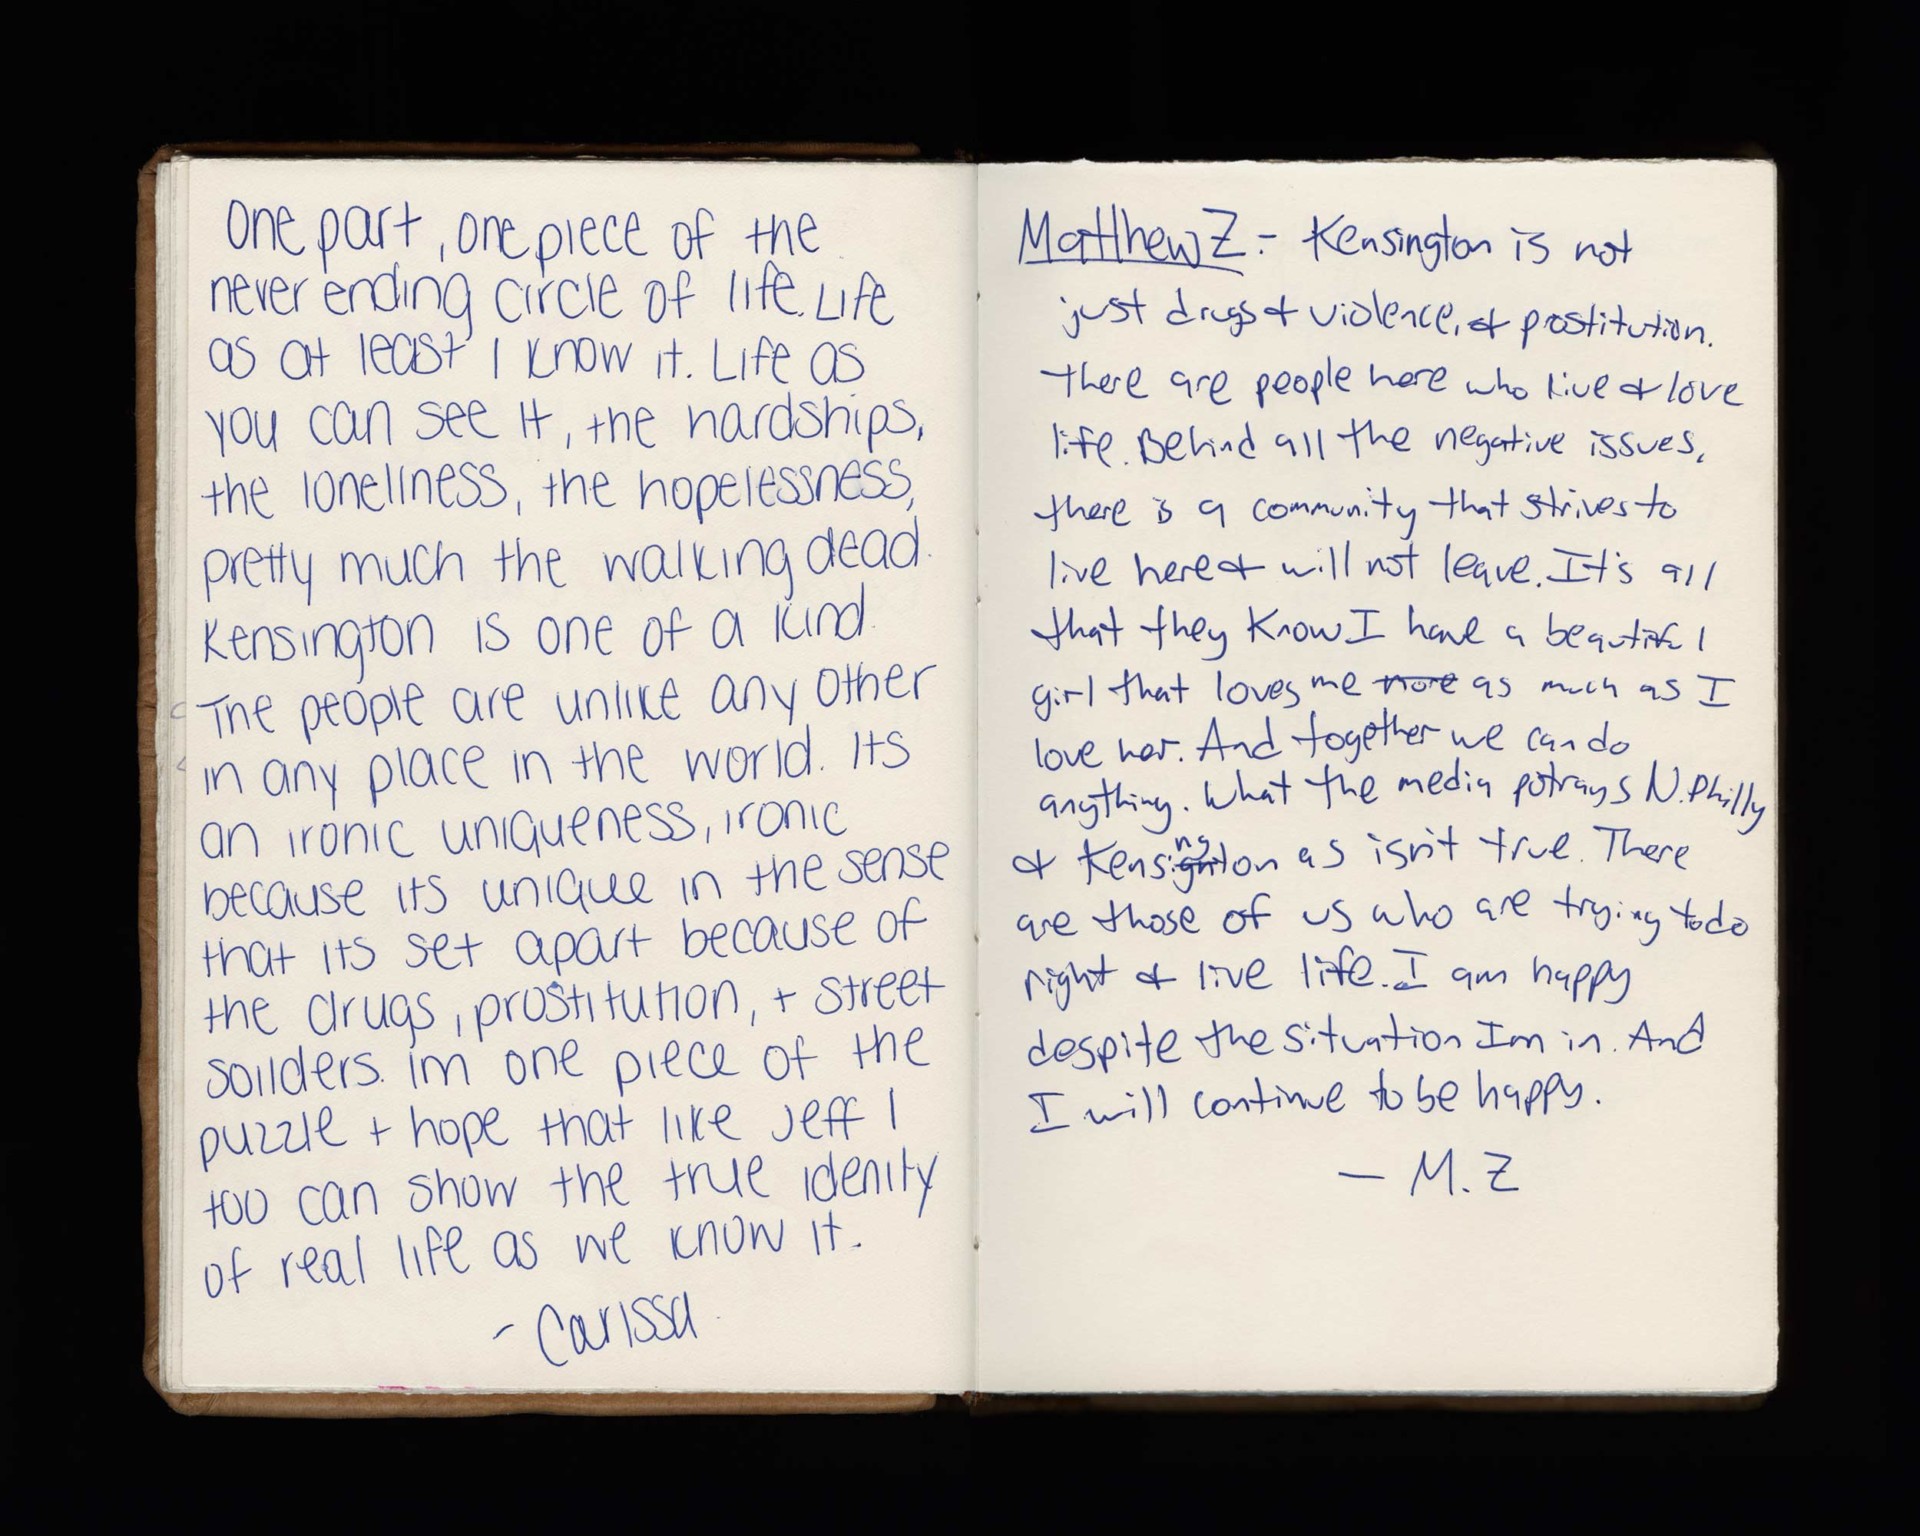 One part, one piece of the
never ending circle of life. Life
as at least I know it. Life as
you can see it, the hardships,
the loneliness, the hopelessness,
pretty much the walking dead.
Kensington is one of a kind.
The people are unlike any other
in any place in the world. Its
an ironic uniqueness, ironic
because its unique in the sense
that its set apart because of
the drugs, prostitution, + street
soilders. Im one piece of the
puzzle + hope that like Jeff I
too can show the true idenity
of real life as we know it.
- Carissa
Matthew Z - Kensington is not
just drugs & violence, & prostitution.
There are people here who live & love
life. Behind all the negative issues,
there is a community that strives to
live here & will not leave. It's all
that they know I have a beautiful
girl that loves me more as much as I
love her. And together we can do
anything. What the media potrays N. Philly
& Kensington as isn't true. There
are those of us who are trying to do
right & live life. I am happy
despite the situation Im in. And
I will continue to be happy.
— M. Z